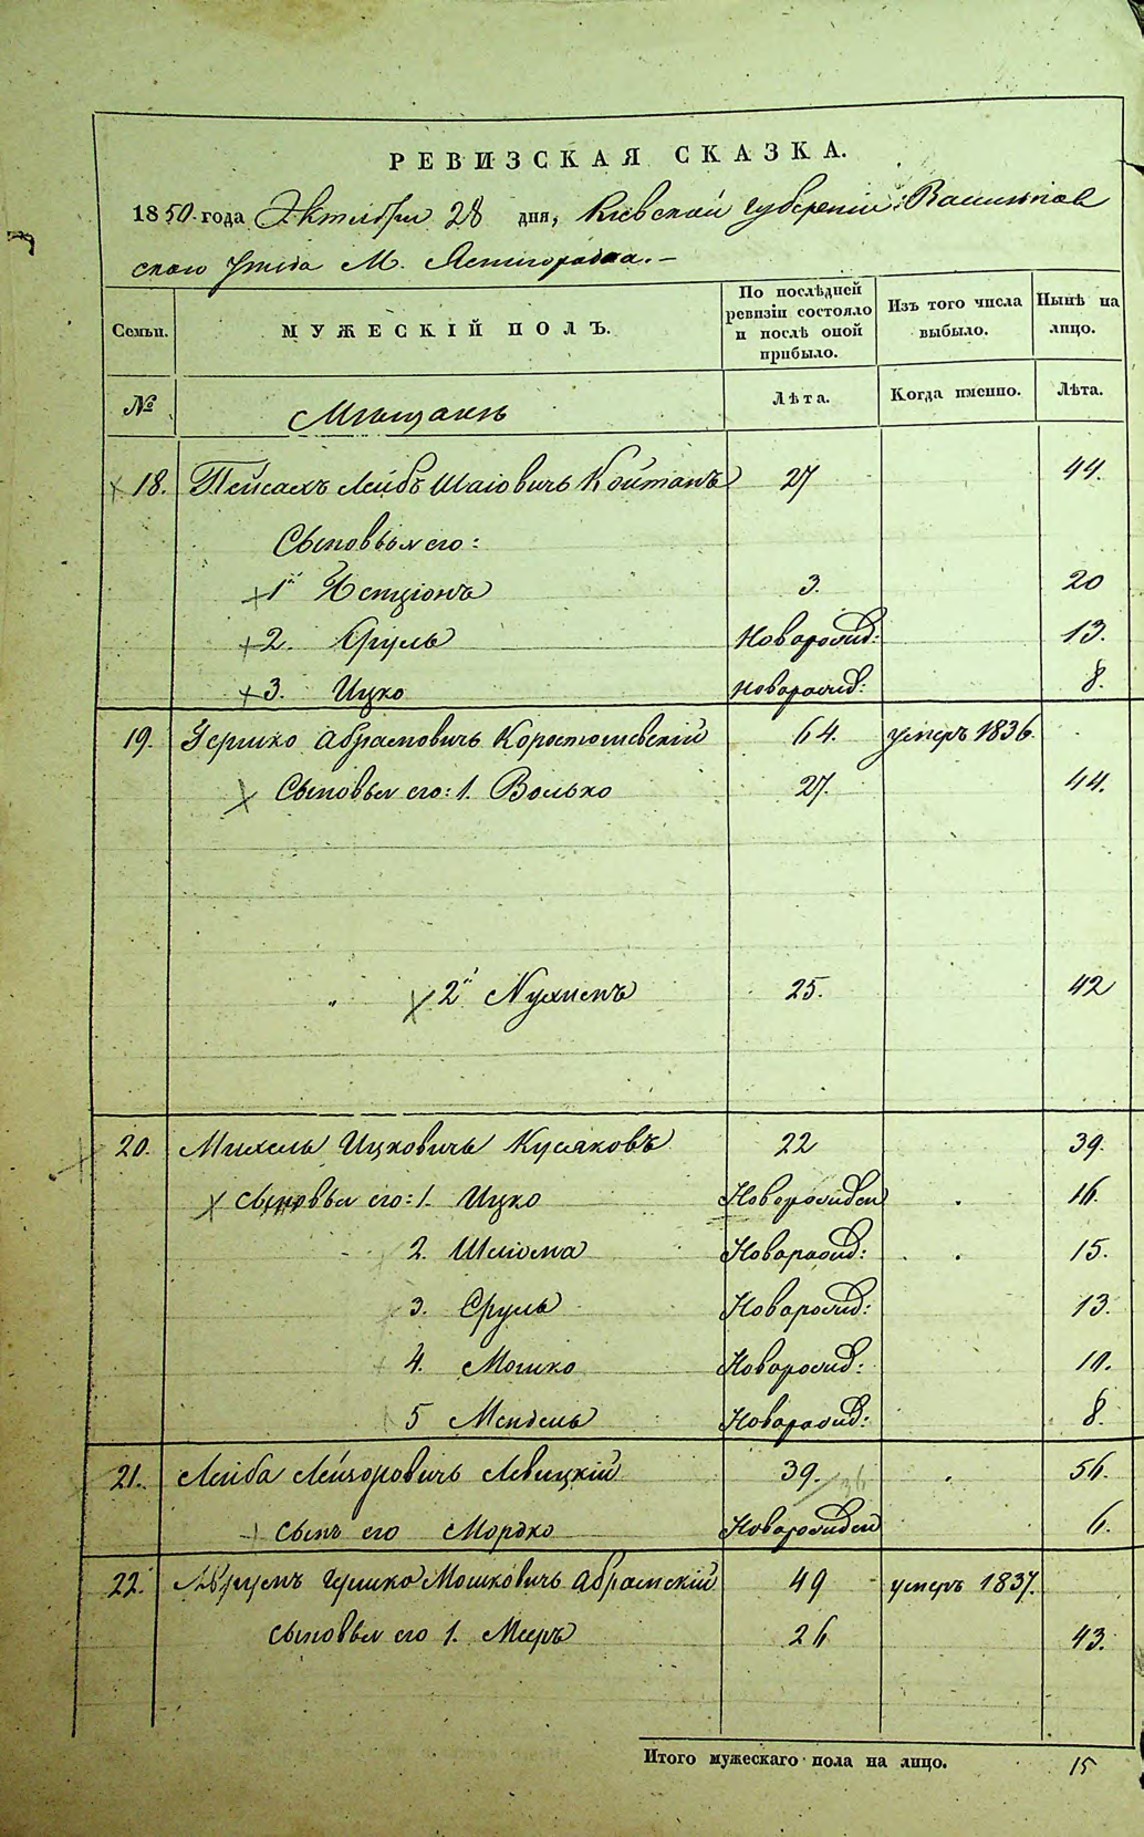 РЕВИЗСКАЯ СКАЗКА.
1850 года Октября 28 дня, Кіевской Губерніи Васильков
скаго уѣзда М. Ясногородка.
Семьи.
МУЖЕСКІЙ ПОЛЪ.
По послѣдней ревизіи состояло и послѣ оной прибыло.
Изъ того числа выбыло.
Нынѣ на лицо.
№
Мѣщане
Лѣта.
Когда именно.
Лѣта.
18. Пейсахъ Лейбъ Шаіовичъ Койтанъ 27 44.
Сыновья его:
1й Бенціонъ 3. 20
2. Сруль Новорожд: 13.
3. Ицко Новорожд: 8.
19. Гершко Абрамовичъ Коростошевскій 64. умеръ 1836.
Сыновья его: 1. Волько 27. 44.
„ 2й Нухимъ 25. 42
20. Михель Ицковичъ Кусяковъ 22 39.
Сыновья его: 1. Ицко Новорожден 16.
2. Шліома Новорожд: 15.
3. Сруль Новорожд: 13.
4. Мошко Новорожд: 10.
5 Мендель Новорожд: 8.
21. Лейба Лейзоровичъ Левицкій 39. 56.
сынъ его Мордко Новорожден 6.
22. Гершко Мошковичъ Абрамскій 49 умеръ 1837.
сыновья его 1. Мееръ 26 43.
Итого мужескаго пола на лицо. 15